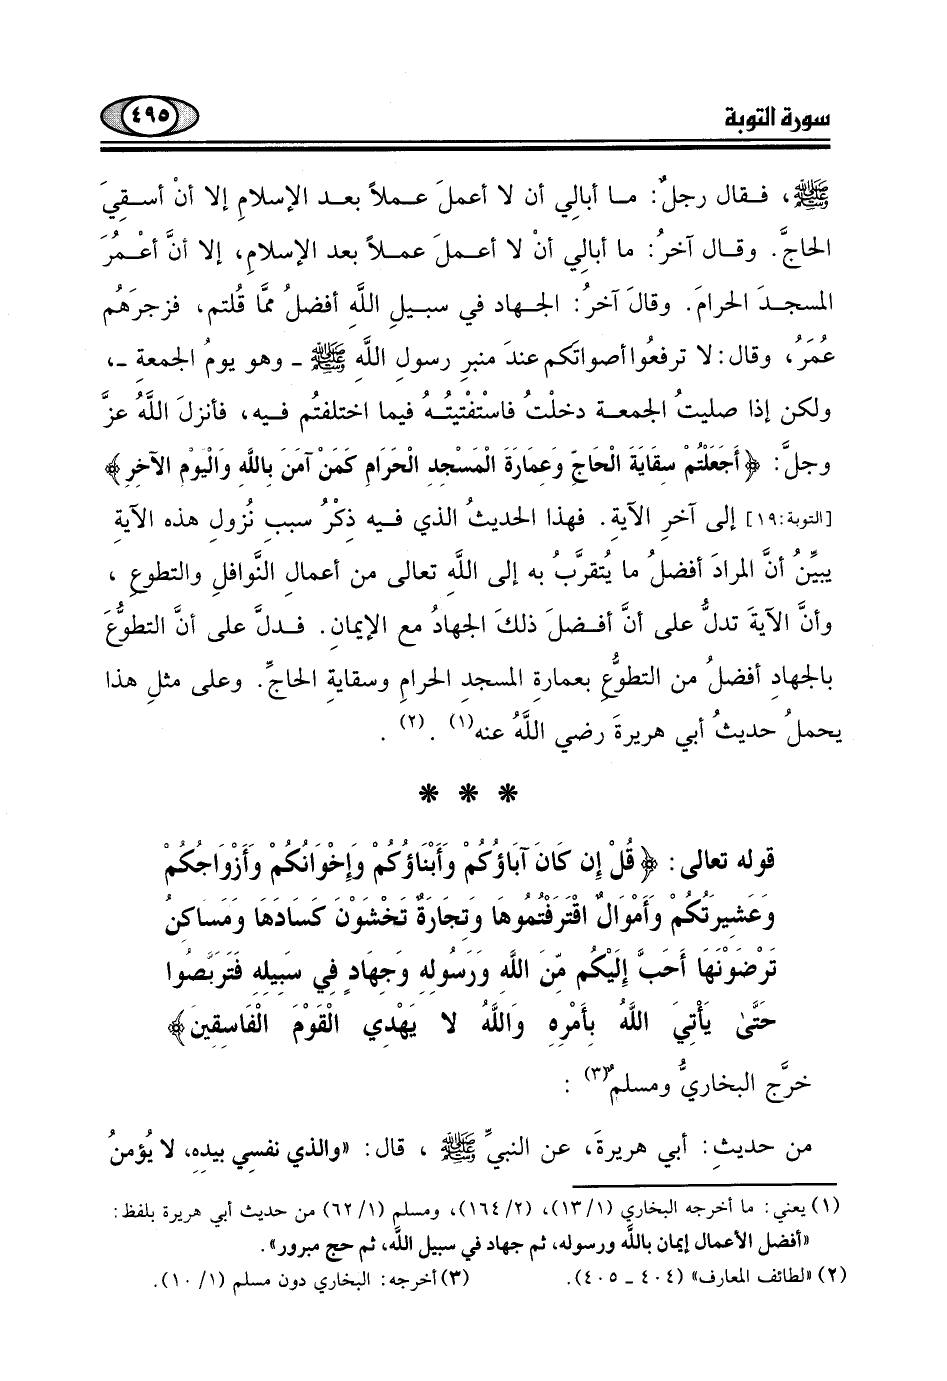 سورة التوبة
٤٩٥
ﷺ، فـقال رجلٌ: مـا أبالي أن لا أعملَ عـملاً بعـد الإسلامِ إلا أنْ أسـقِيَ
الحاجَّ. وقـال آخرُ: ما أبالي أنْ لا أعـملَ عمـلاً بعد الإسلامِ، إلا أنَّ أعْـمُرَ
المسجـدَ الحرامَ. وقالَ آخرُ: الجـهاد في سبـيلِ اللَّه أفضلُ ممَّا قُلتم، فزجرَهُم
عُمَرُ، وقال: لا ترفعُوا أصواتكم عندَ منبرِ رسولِ اللَّه ﷺ ـ وهو يومُ الجمعةِ ـ،
ولكن إذا صليتُ الجمعـة دخلْتُ فاسْتفْتيتُـهُ فيما اختلفتُم فـيه، فأنزلَ اللَّهُ عزَّ
وجلَّ: ﴿أَجَعَلْتُمْ سِقَايَةَ الْحَاجِّ وَعِمَارَةَ الْمَسْجِدِ الْحَرَامِ كَمَنْ آمَنَ بِاللَّهِ وَالْيَوْمِ الآخِرِ﴾
[التوبة:١٩] إلى آخرِ الآيةِ. فهذا الحديثُ الذي فـيه ذِكْرُ سببِ نُزولِ هذه الآيةِ
يبيِّنُ أنَّ المرادَ أفضلُ ما يُتقرَّبُ به إلى اللَّه تعالى من أعمالِ النَّوافلِ والتطوعِ ،
وأنَّ الآيةَ تدلُّ على أنَّ أفـضلَ ذلكَ الجهادُ مع الإيمانِ. فـدلَّ على أنَّ التطوُّعَ
بالجهادِ أفضلُ من التطوُّعِ بعمارةِ المسجدِ الحرامِ وسقايةِ الحاجِّ. وعلى مثلِ هذا
يحملُ حديثُ أبي هريرةَ رضي اللَّهُ عنه(١) .(٢) .
* * *
قوله تعالى: ﴿قُلْ إِن كَانَ آبَاؤُكُمْ وَأَبْنَاؤُكُمْ وَإِخْوَانُكُمْ وَأَزْوَاجُكُمْ
وَعَشِيرَتُكُمْ وَأَمْوَالٌ اقْتَرَفْتُمُوهَا وَتِجَارَةٌ تَخْشَوْنَ كَسَادَهَا وَمَسَاكِنُ
تَرْضَوْنَهَا أَحَبَّ إِلَيْكُم مِّنَ اللَّهِ وَرَسُولِهِ وَجِهَادٍ فِي سَبِيلِهِ فَتَرَبَّصُوا
حَتَّىٰ يَأْتِيَ اللَّهُ بِأَمْرِهِ وَاللَّهُ لا يَهْدِي الْقَوْمَ الْفَاسِقِينَ﴾
خرَّج البخاريُّ ومسلمٌ(٣) :
من حديثِ: أبي هريرةَ، عن النبيِّ ﷺ ، قال: «والذي نفسِي بيدِه، لا يُؤمنُ
(١) يعني: ما أخرجه البخاري (١/ ١٣)، (٢/ ١٦٤)، ومسلم (١/ ٦٢) من حديث أبي هريرة بلفظ:
«أفضل الأعمال إيمان باللَّه ورسوله، ثم جهاد في سبيل اللَّه، ثم حج مبرور».
(٢) «لطائف المعارف» (٤٠٤ ـ ٤٠٥). (٣) أخرجه: البخاري دون مسلم (١/ ١٠).